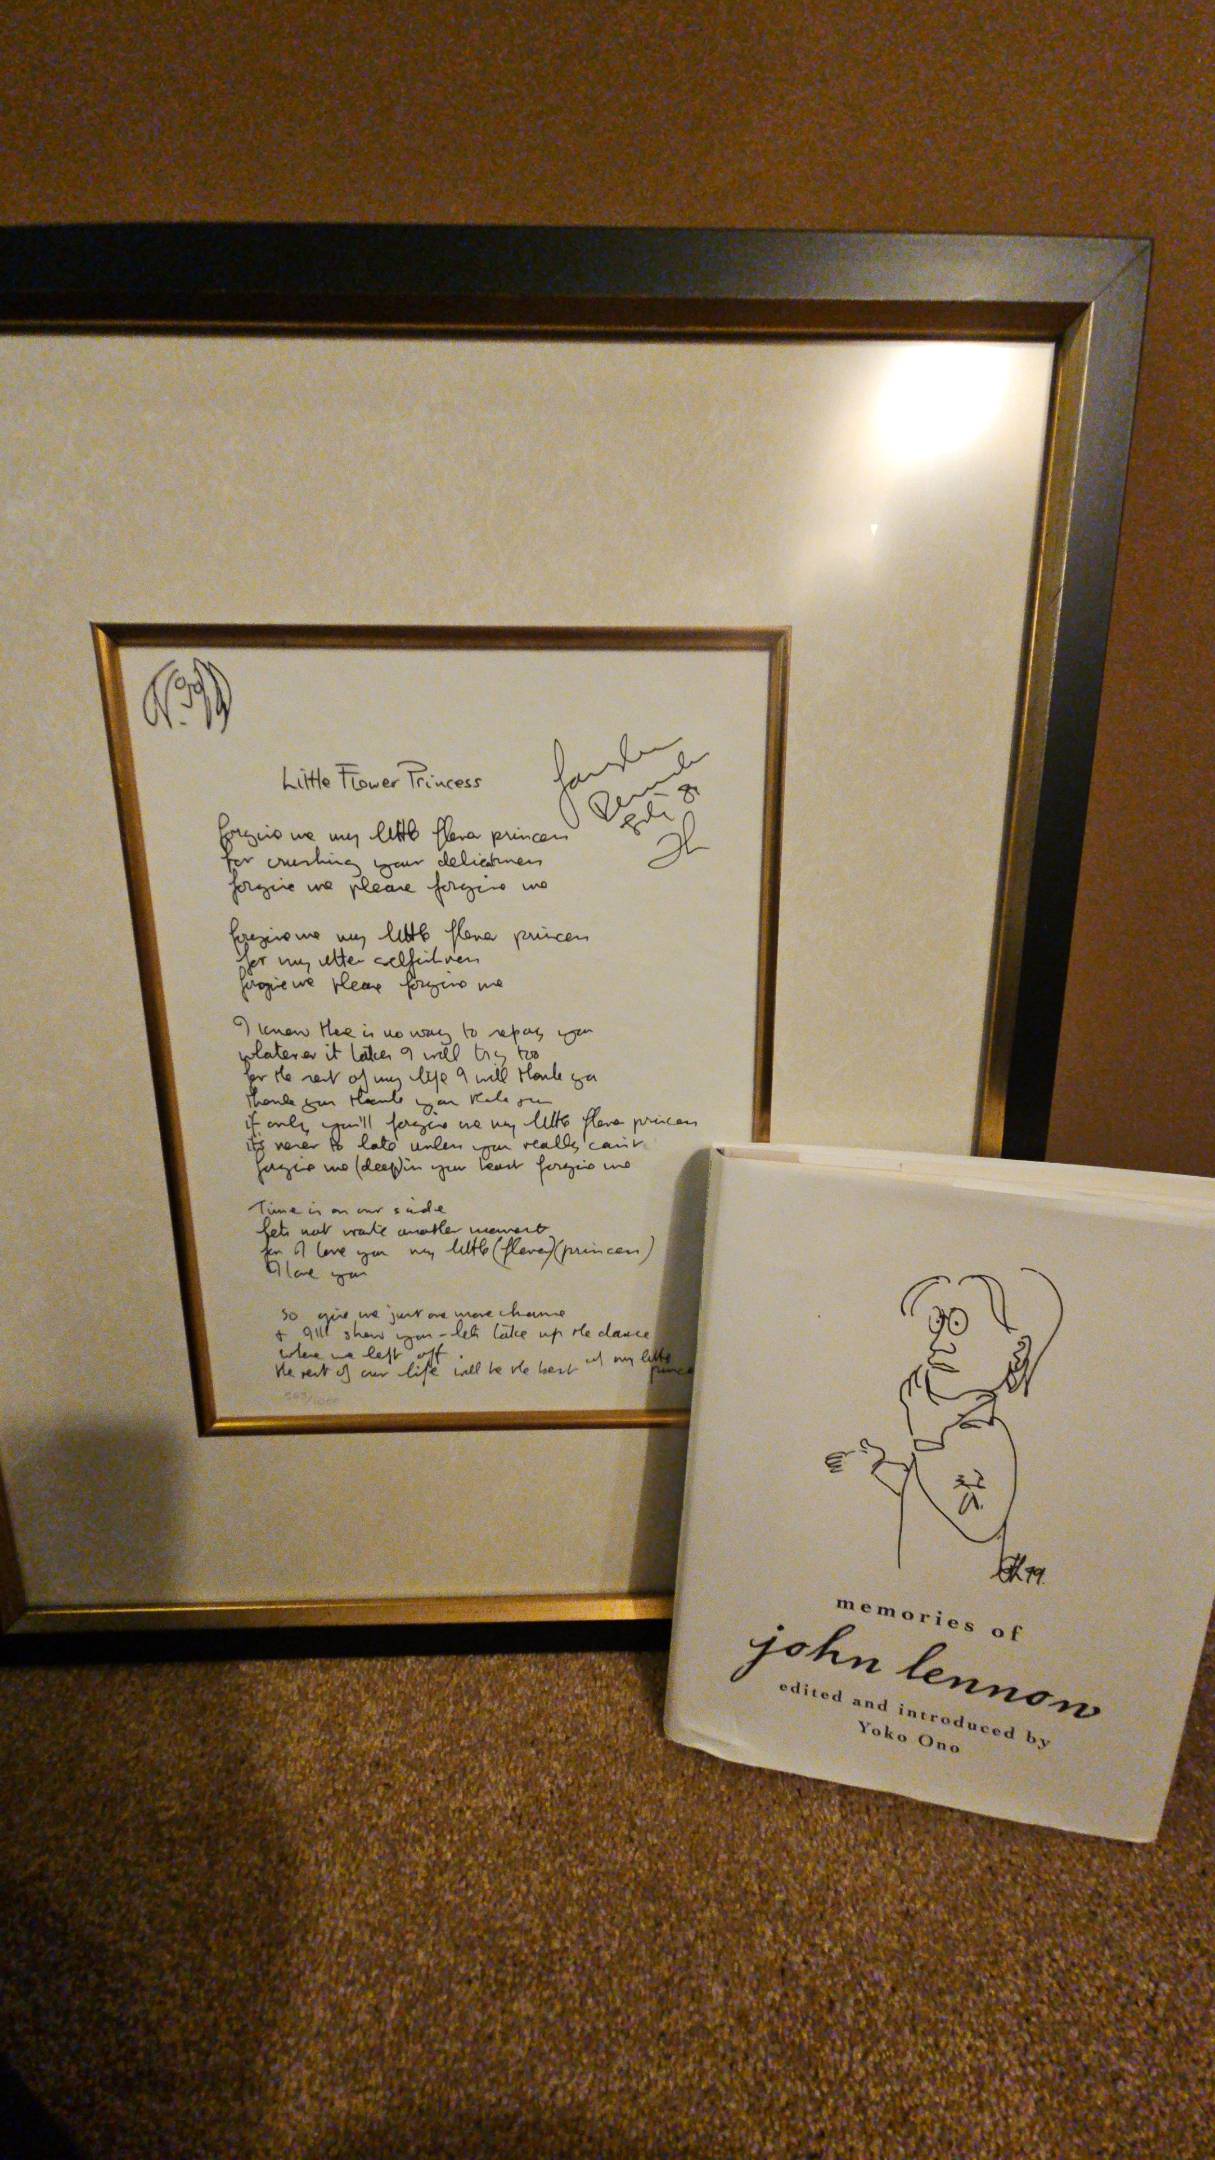 Little Flower Princess
forgive me my little flower princess
for crushing your delicateness
forgive me please forgive me
forgive me my little flower princess
for my utter selfishness
forgive me please forgive me
I know there is no way to repay you
whatever it takes I will try too
for the rest of my life I will thank you
thank you thank you thank you
if only you'll forgive me my little flower princess
it's never to late unless you really can't
forgive me (deep) in your heart forgive me
Time is on our side
lets not waste another moment
for I love you my little (flower) (princess)
I love you
so give me just one more chance
+ I'll show you - lets take up the dance
where we left off.
the rest of our life will be the best my little
memories of
john lennon
edited and introduced by
Yoko Ono